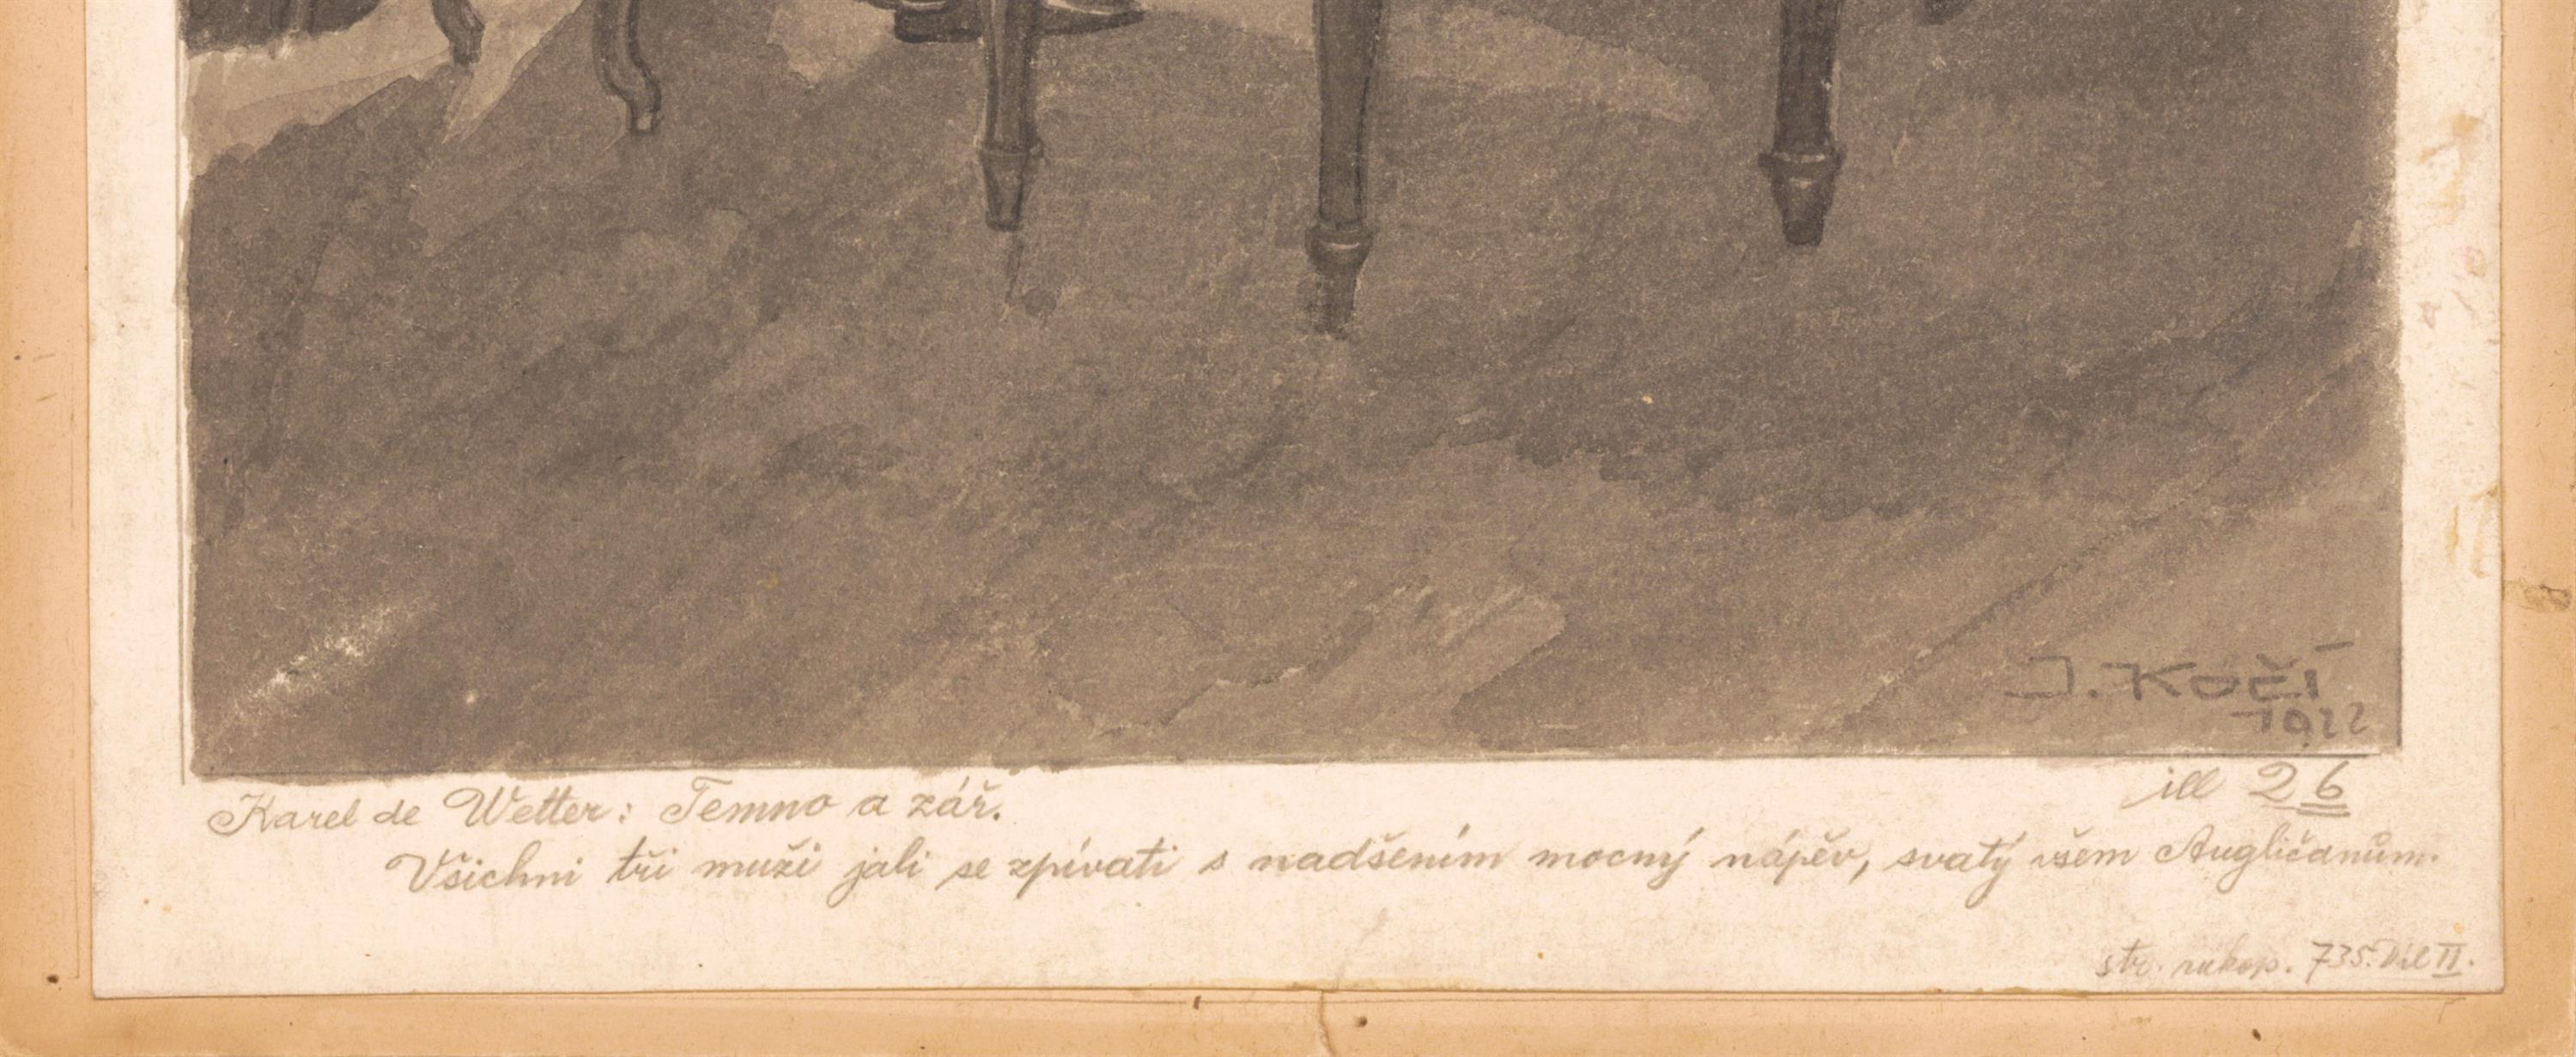 J. Kočí
1922
ill 26
Karel de Wetter: Temno a zář.
Všichni tři muži jali se zpívati s nadšením mocný nápěv, svatý všem Angličanům.
str. rukop. 735. Díl II.